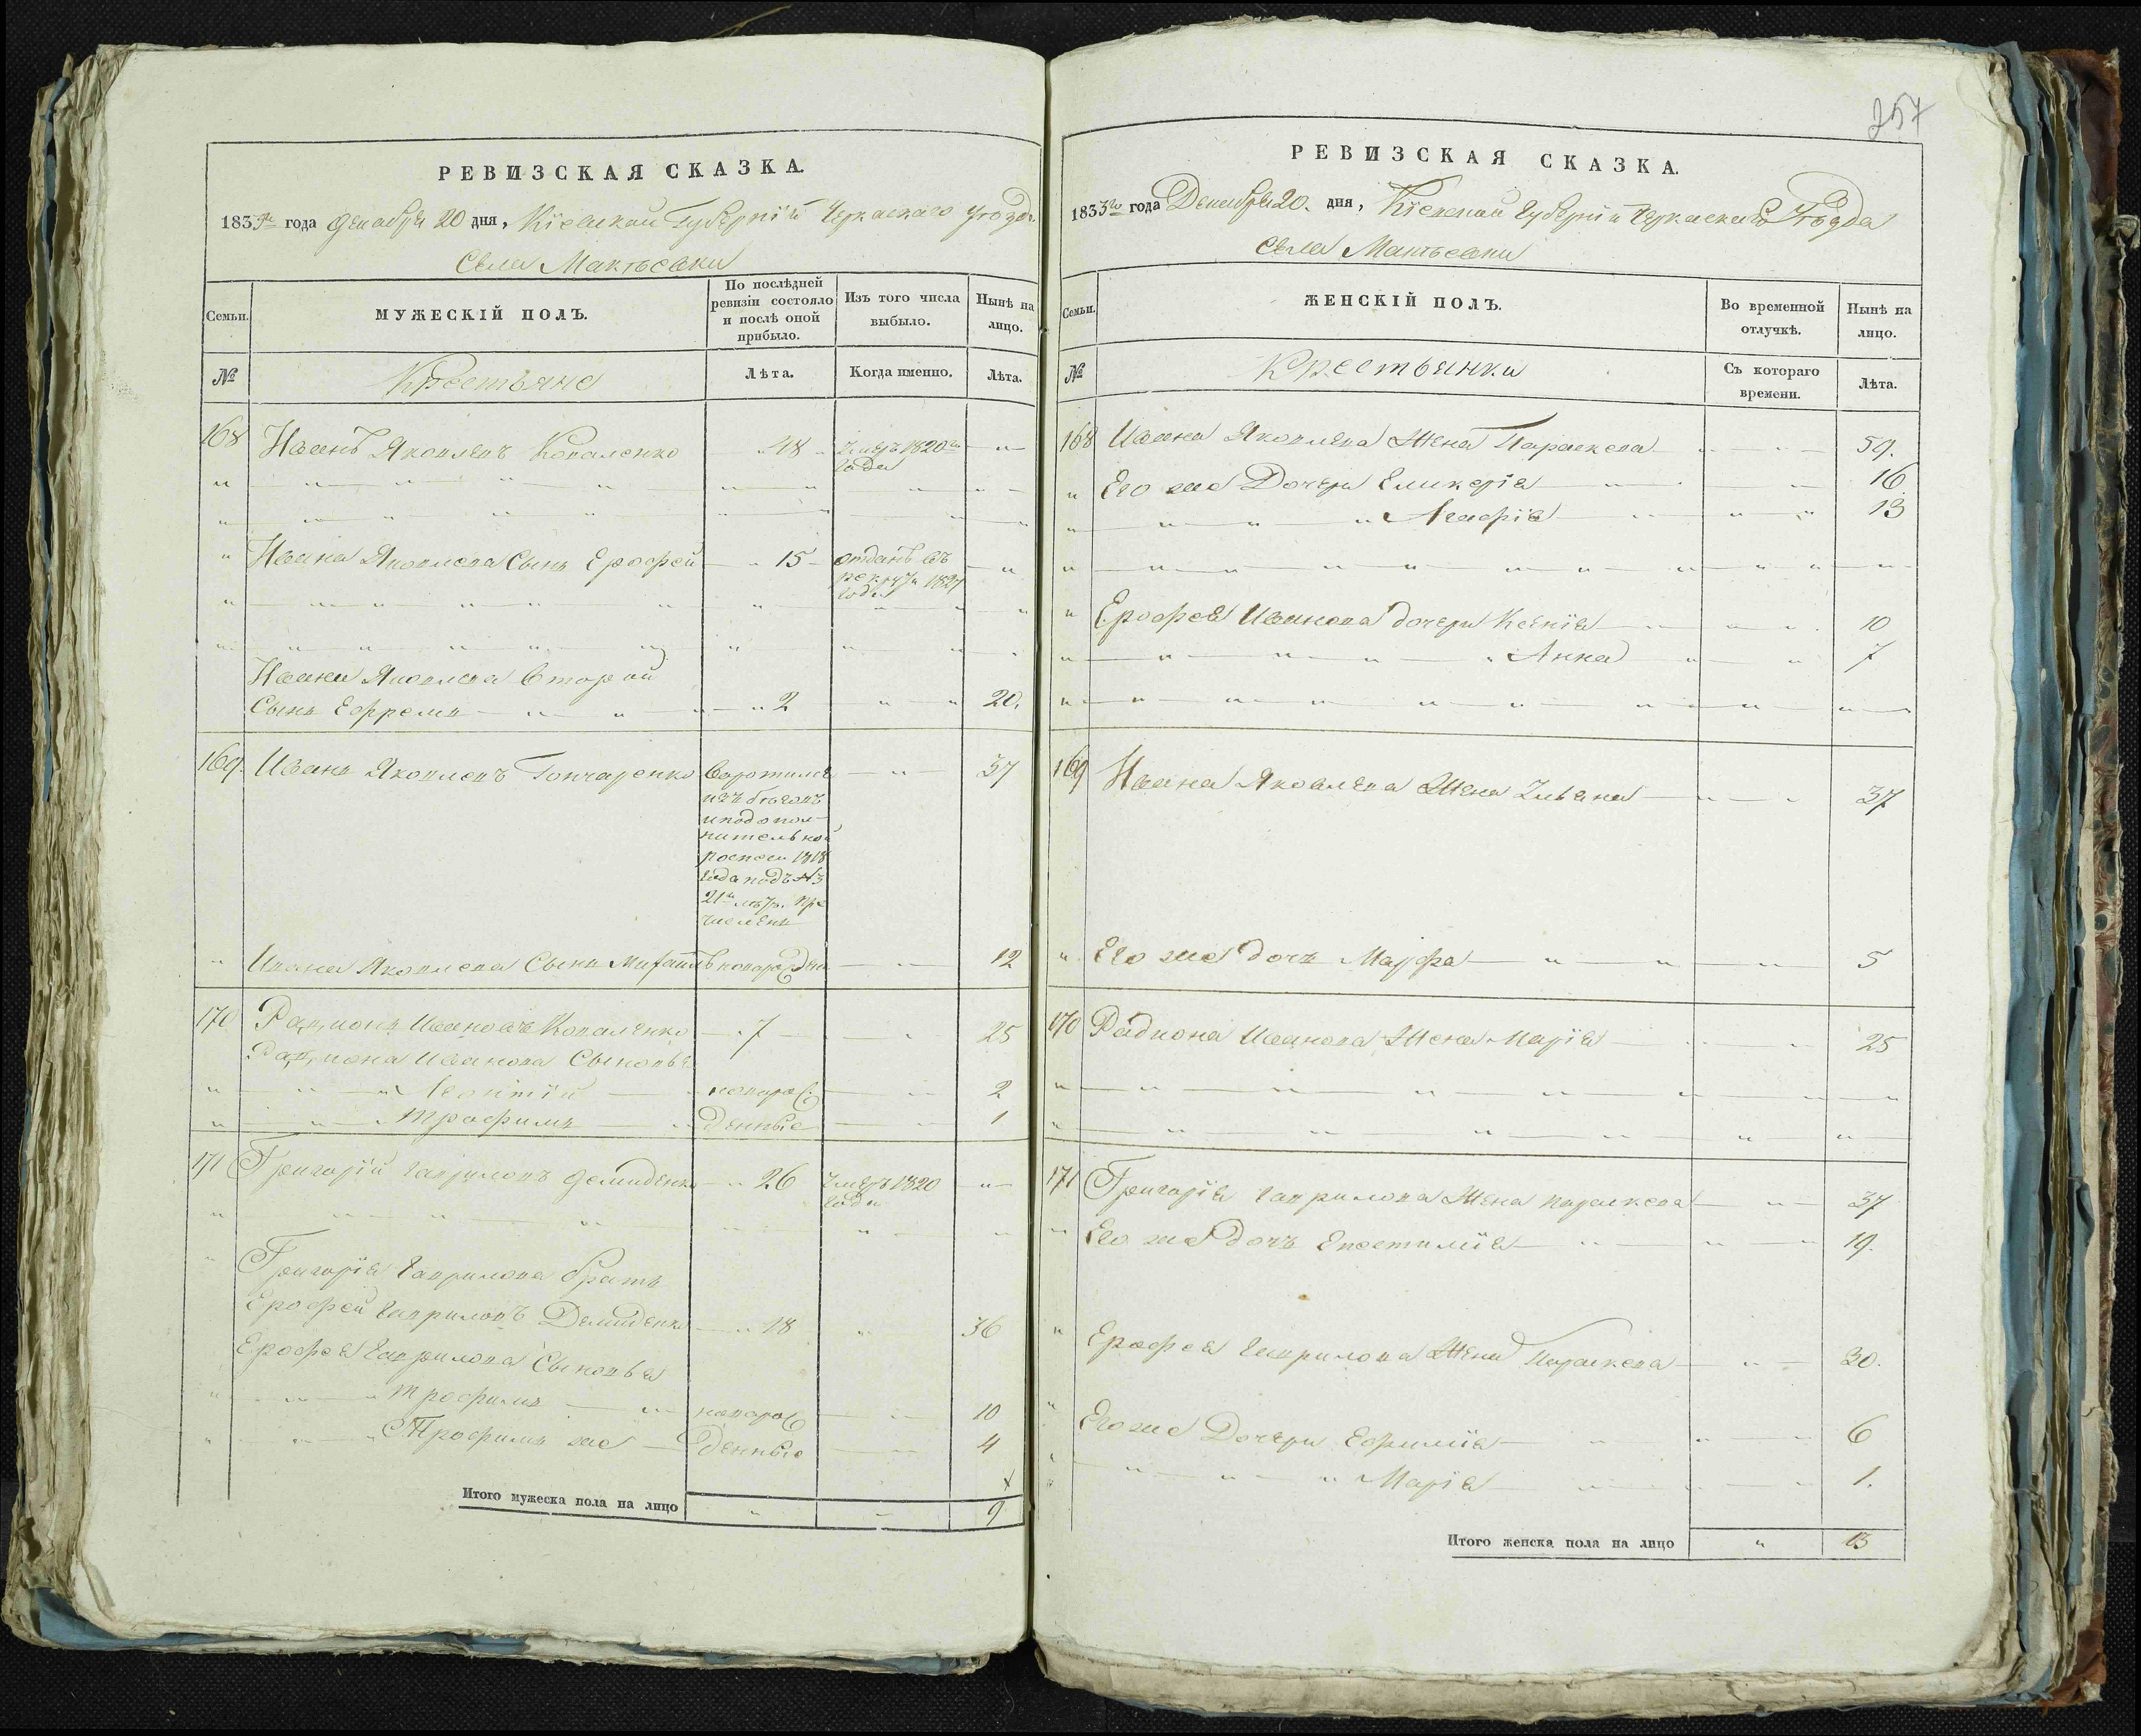 РЕВИЗСКАЯ СКАЗКА.
1833го года Декабря 20 дня, Кіевской Губерніи Черкаскаго уезда
Села Макѣевки
Семьи.
МУЖЕСКІЙ ПОЛЪ.
По послѣдней ревизіи состояло и послѣ оной прибыло.
Изъ того числа выбыло.
Нынѣ на лицо.
№
Крестьяне
Лѣта.
Когда именно.
Лѣта.
168 Иванъ Яковлевъ Коваленко 48 Умеръ 1820го
года
" Ивана Яковлева Сынъ Ерофей 15 отданъ въ
рекруты 1827
года
Ивана Яковлева Второй
Сынъ Ефремъ 2 20.
169. Иванъ Яковлевъ Гончаренко Воротился 37
изъ бѣговъ
и по дополнительной
1818
года подъ №
21м
численъ
" Ивана Яковлева Сынъ Михаилъ новорожден 12
170 Радионъ Ивановъ Коваленко 7 25
Радиона Иванова Сыновья
" Леонтій новорож 2
" Трофимъ денные 1
171 Григорій Гавриловъ Демиденко 26 Умеръ 1820
года
" Григорія Гаврилова братъ
Ерофей Гавриловъ Демиденко 18 36
Ерофея Гаврилова Сыновья
" Трофимъ новорож 10
" Трофимъ же денные 4
Итого мужеска пола на лицо " " 9
257
РЕВИЗСКАЯ СКАЗКА.
1833го года Декабря 20. дня, Кіевской Губерніи Черкаскаго Уѣзда
Села Макѣевки
Семьи.
ЖЕНСКІЙ ПОЛЪ.
Во временной отлучкѣ.
Нынѣ на лицо.
№
Крестьянки
Съ котораго времени.
Лѣта.
168 Ивана Яковлева Жена Параскева 59.
" Его же Дочери Гликерія 16
" Агафія 13
" Ерофея Иванова дочери Ксенія 10
" Анна 7
169 Ивана Яковлева Жена Ульяна 37
" Его же дочь Марфа 5
170 Радиона Иванова Жена Марія 25
171 Григорія Гаврилова Жена Параскева 37
" Его же дочь Евстимія 19.
" Ерофея Гаврилова Жена Параскева 30.
" Его же Дочери Ефимія 6
" Марія 1.
Итого женска пола на лицо " 13